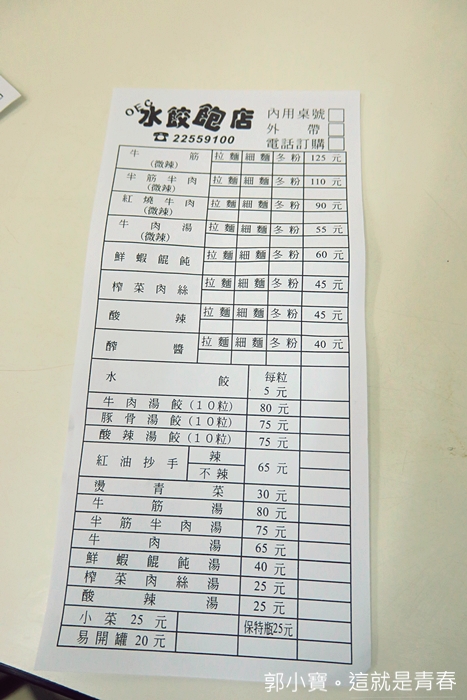 OEC
水餃飽店
☎22559100
內用桌號
外帶
電話訂購
牛筋(微辣) 拉麵 細麵 冬粉 125元
半筋半肉(微辣) 拉麵 細麵 冬粉 110元
紅燒牛肉(微辣) 拉麵 細麵 冬粉 90元
牛肉湯(微辣) 拉麵 細麵 冬粉 55元
鮮蝦餛飩 拉麵 細麵 冬粉 60元
榨菜肉絲 拉麵 細麵 冬粉 45元
酸辣 拉麵 細麵 冬粉 45元
醡醬 拉麵 細麵 冬粉 40元
水餃 每粒5元
牛肉湯餃(10粒) 80元
豚骨湯餃(10粒) 75元
酸辣湯餃(10粒) 75元
紅油抄手 辣 不辣 65元
燙青菜 30元
牛筋湯 80元
半筋半肉湯 75元
牛肉湯 65元
鮮蝦餛飩湯 40元
榨菜肉絲湯 25元
酸辣湯 25元
小菜25元 保特瓶25元
易開罐20元
郭小寶。這就是青春